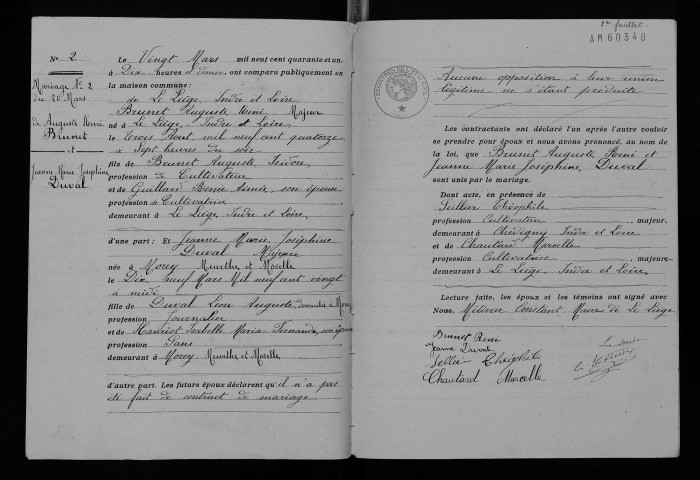 No 2
Mariage No 2
du 20 Mars
de Auguste Henri
Brunet
et
Jeanne Marie Joséphine
Duval
Le Vingt Mars mil neuf cent quarante et un
à Dix heures et demie ont comparu publiquement en
la maison commune:
de Le Liège, Indre et Loire
Brunet Auguste René Majeur
né à Le Liège, Indre et Loire
le trois Août mil neuf cent quatorze
à sept heures du soir
fils de Brunet Auguste
profession de Cultivateur
et de Guillard Renée Aimée, son épouse
profession de Cultivatrice
demeurant à Le Liège, Indre et Loire,
d'une part: Et Jeanne Marie Joséphine
Duval Majeure
née à Morey Meurthe et Moselle
le Dix neuf Mars Mil neuf cent vingt
à midi
fille de Duval Léon Auguste, domicilié à Morey
profession Journalier
et de Hanriot Isabelle Maria Fernande, son épouse
profession Sans
demeurant à Morey Meurthe et Moselle
d'autre part. Les futurs époux déclarent qu'il n'a pas
été fait de contract de mariage.
1er feuillet.
AM60340
Aucune opposition à leur union
légitime ne s'étant produite
Les contractants ont déclaré l'un après l'autre vouloir
se prendre pour époux et nous avons prononcé, au nom de
la loi, que Brunet Auguste René et
Jeanne Marie Joséphine Duval
sont unis par le mariage.
Dont acte, en présence de
Sellier Théophile
profession Cultivateur, majeur,
demeurant à Chédigny Indre et Loire
et de Chautard Marcelle
profession Cultivatrice, majeure
demeurant à Le Liège, Indre et Loire,
Lecture faite, les époux et les témoins ont signé avec
Nous, Métivier Constant Maire de Le Liège
Brunet René
Jeanne Duval
Sellier Théophile
Chautard Marcelle
Le Maire